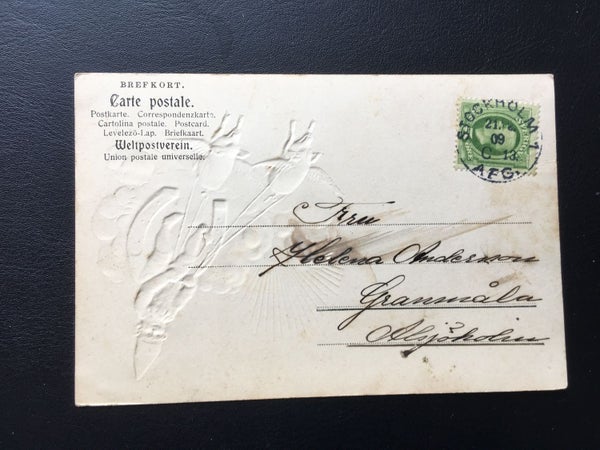 BREFKORT.
Carte postale.
Postkarte. Correspondenzkarte.
Cartolina postale. Postcard.
Levelező-Lap. Briefkaart.
Weltpostverein.
Union postale universelle.
STOCKHOLM 1
09
AFG.
Fru
Helena Anderson
Granmåla
Alsjöholm